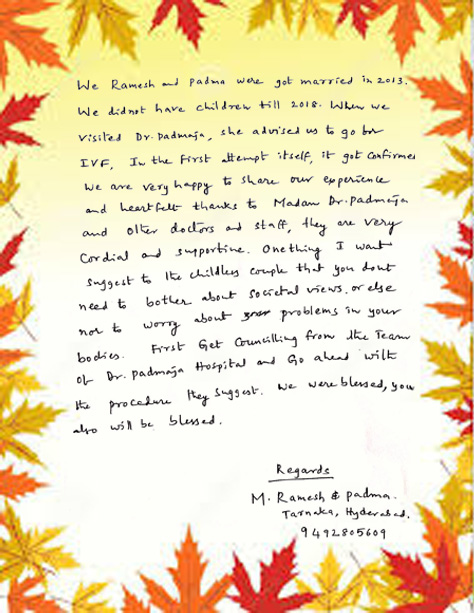 We Ramesh and Padma were got married in 2013.
We didnot have children till 2018. When we
visited Dr. Padmaja, she advised us to go for
IVF, In the first attempt itself, it got confirmed
We are very happy to share our experience
and heartfelt thanks to Madam Dr. Padmaja
and other doctors and staff, they are very
Cordial and supportive. One thing I want
suggest to the childless couple that you dont
need to bother about societal views. or else
nor to worry about problems in your
bodies. First Get Councilling from the Team
of Dr. Padmaja Hospital and Go ahead with
the procedure they suggest. We were blessed, you
also will be blessed.
Regards
M. Ramesh & Padma.
Tarnaka, Hyderabad.
9492805609